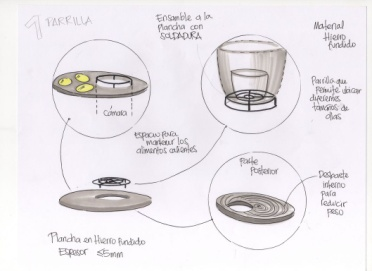 PARRILLA
Ensamble a la
Plancha con
SOLDADURA
Material
Hierro
fundido
Parrilla que
permite ubicar
diferentes
tamaños de
ollas
Cámala
espacio para
mantener los
alimentos calientes
Parte
Posterior
Desbaste
interno
para
reducir
peso
Plancha en Hierro fundido
Espesor